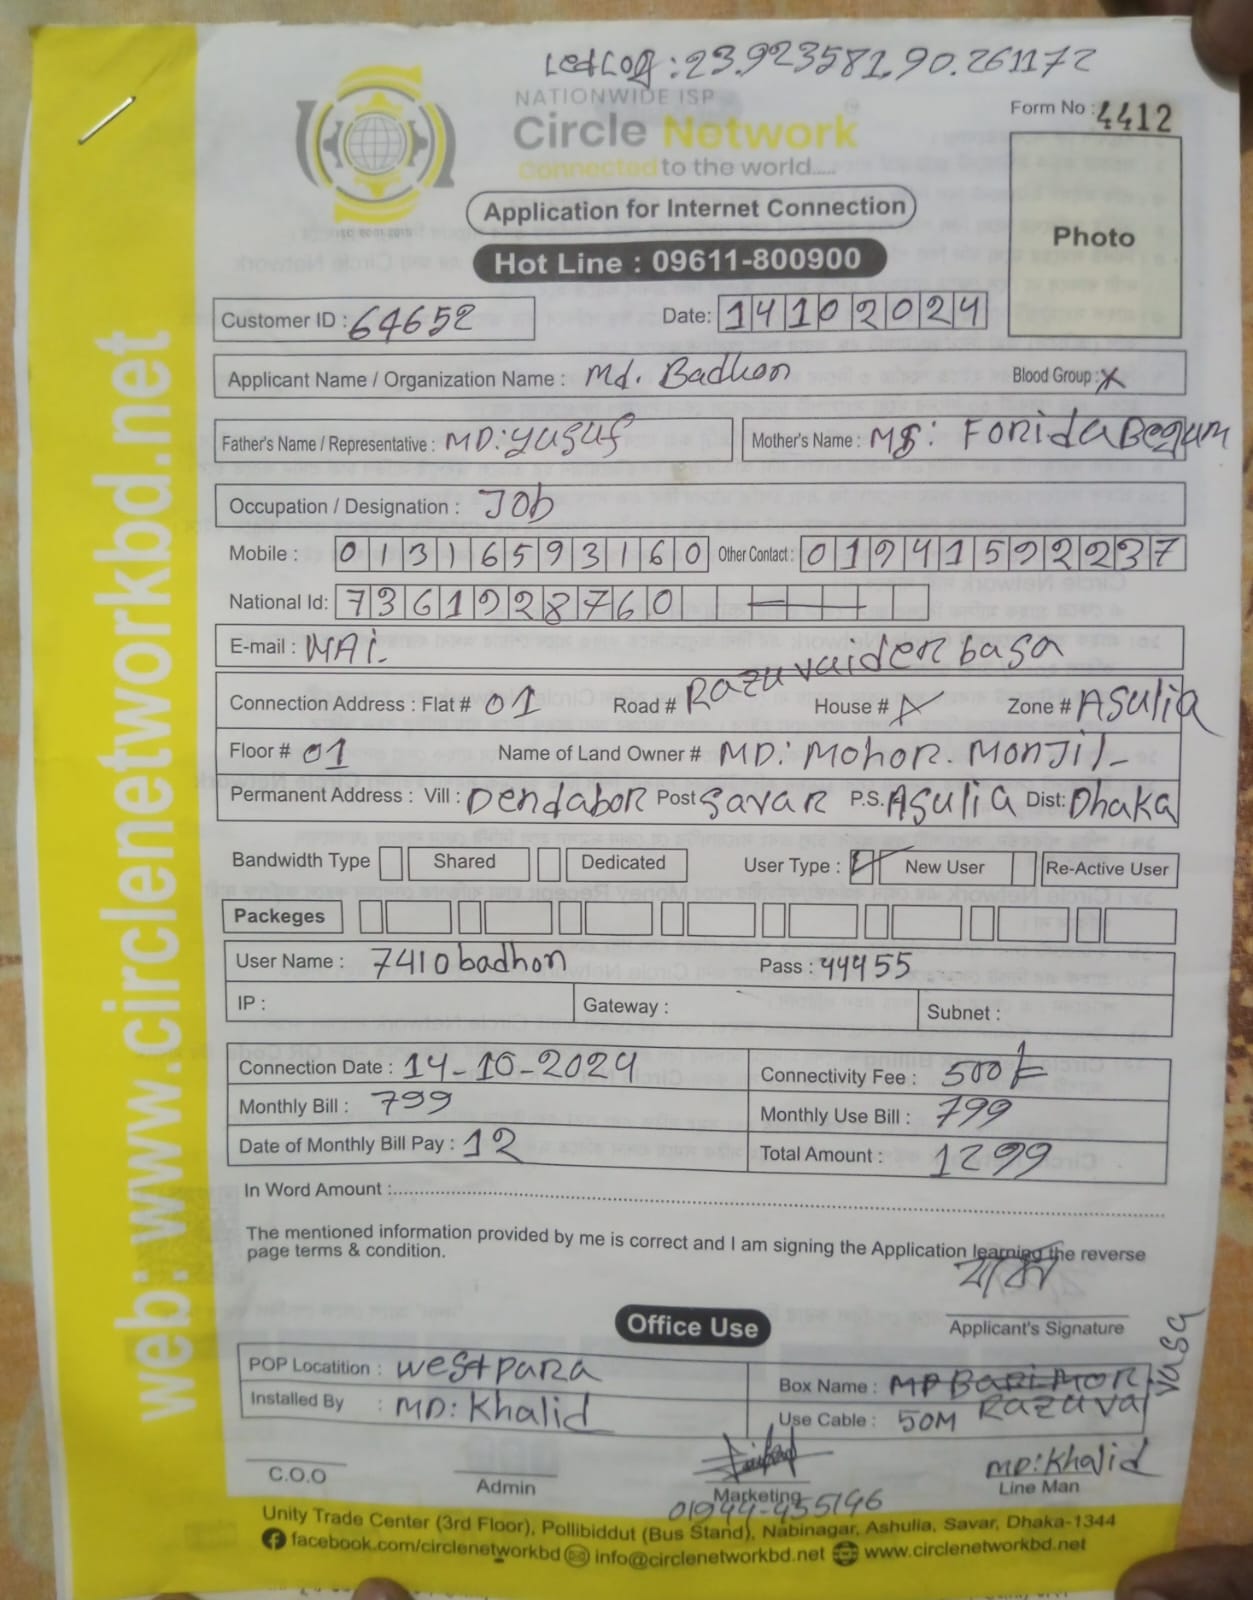 Led Log : 23.923581,90.261172
NATIONWIDE ISP
Circle Network
Connected to the world.....
Form No : 4412
Application for Internet Connection
Photo
Hot Line : 09611-800900
Customer ID : 64652 Date: 14102024
Applicant Name / Organization Name : Md. Badhon Blood Group : X
Father's Name / Representative : MD: yusuf Mother's Name : MS: Forida Begum
Occupation / Designation : JOb
Mobile : 01316593160 Other Contact : 01941592237
National Id: 7361928760
E-mail : NAi
Connection Address : Flat # 01 Road # Razu vaider basa House # X Zone # Asulia
Floor # 01 Name of Land Owner # MD: Mohor. Monjil
Permanent Address : Vill : Dendabor Post Savar P.S. Asulia Dist: Dhaka
Bandwidth Type Shared Dedicated User Type : New User Re-Active User
Packeges
User Name : 7410badhon Pass : 44455
IP : Gateway : Subnet :
Connection Date : 14-10-2024 Connectivity Fee : 500/=
Monthly Bill : 799 Monthly Use Bill : 799
Date of Monthly Bill Pay : 12 Total Amount : 1299
In Word Amount :
The mentioned information provided by me is correct and I am signing the Application learning the reverse
page terms & condition.
Applicant's Signature
Office Use
POP Locatition : westpara Box Name : MP Bari Mor
Razu vai vasa
Installed By : MD: Khalid Use Cable : 50M
C.O.O Admin Marketing MD: Khalid
Line Man
Unity Trade Center (3rd Floor), Pollibiddut (Bus Stand), Nabinagar, Ashulia, Savar, Dhaka-1344
facebook.com/circlenetworkbd info@circlenetworkbd.net www.circlenetworkbd.net
web: www.circlenetworkbd.net